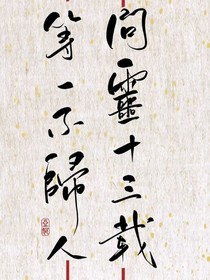 問靈十三載
等一不歸人